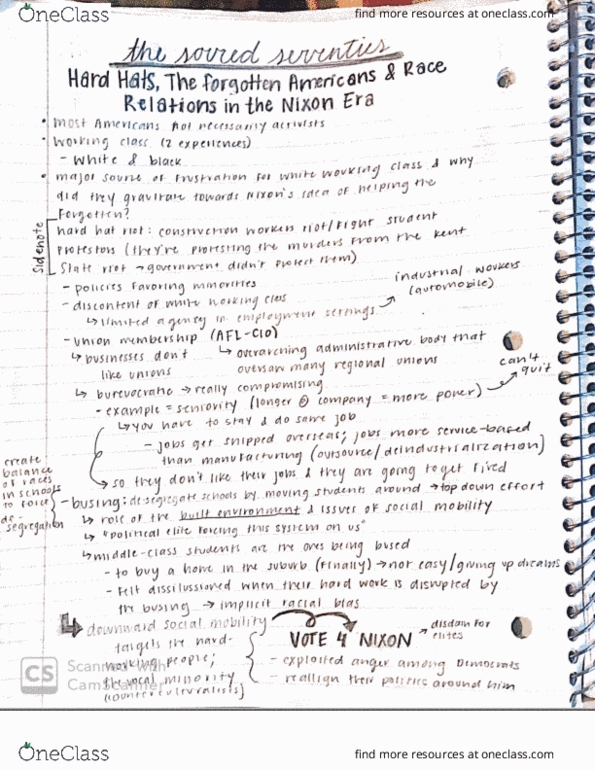 OneClass
find more resources at oneclass.com
the soured seventies
Hard Hats, The Forgotten Americans & Race
Relations in the Nixon Era
• most Americans not necessarily activists
• working class (2 experiences)
- white & black
• major source of frustration for white working class & why
did they gravitate towards Nixon's idea of helping the
Forgotten?
Sidenote
hard hat riot: construction workers riot/fight student
protestors (they're protesting the murders from the Kent
State riot → government didn't protect them)
- policies favoring minorities
- discontent of white working class
↳ limited agency in employment settings → industrial workers
(automobile)
- union membership (AFL-CIO)
↳ businesses don't
like unions
↳ overarching administrative body that
oversaw many regional unions
↳ bureaucratic → really compromising
- example = seniority (longer @ company = more power) → can't
quit
↳ you have to stay & do same job
- jobs get shipped overseas; jobs more service-based
than manufacturing (outsource/deindustrialization)
↳ so they don't like their jobs & they are going to get fired
create
balance
of races
in schools
to force
de-
segregation
- busing: desegregate schools by moving students around → top down effort
↳ role of the built environment & issues of social mobility
↳ "political elite forcing this system on us"
↳ middle-class students are the ones being bused
- to buy a home in the suburb (finally) → not easy/giving up dreams
- felt dissilussioned when their hard work is disrupted by
the busing → implicit racial bias
↳ downward social mobility
targets the hard-
working people;
the vocal minority
(counterculturalists)
VOTE 4 NIXON → disdain for
elites
- exploited anger among Democrats
- reallign their politics around him
CS Scanned with
CamScanner
OneClass
find more resources at oneclass.com